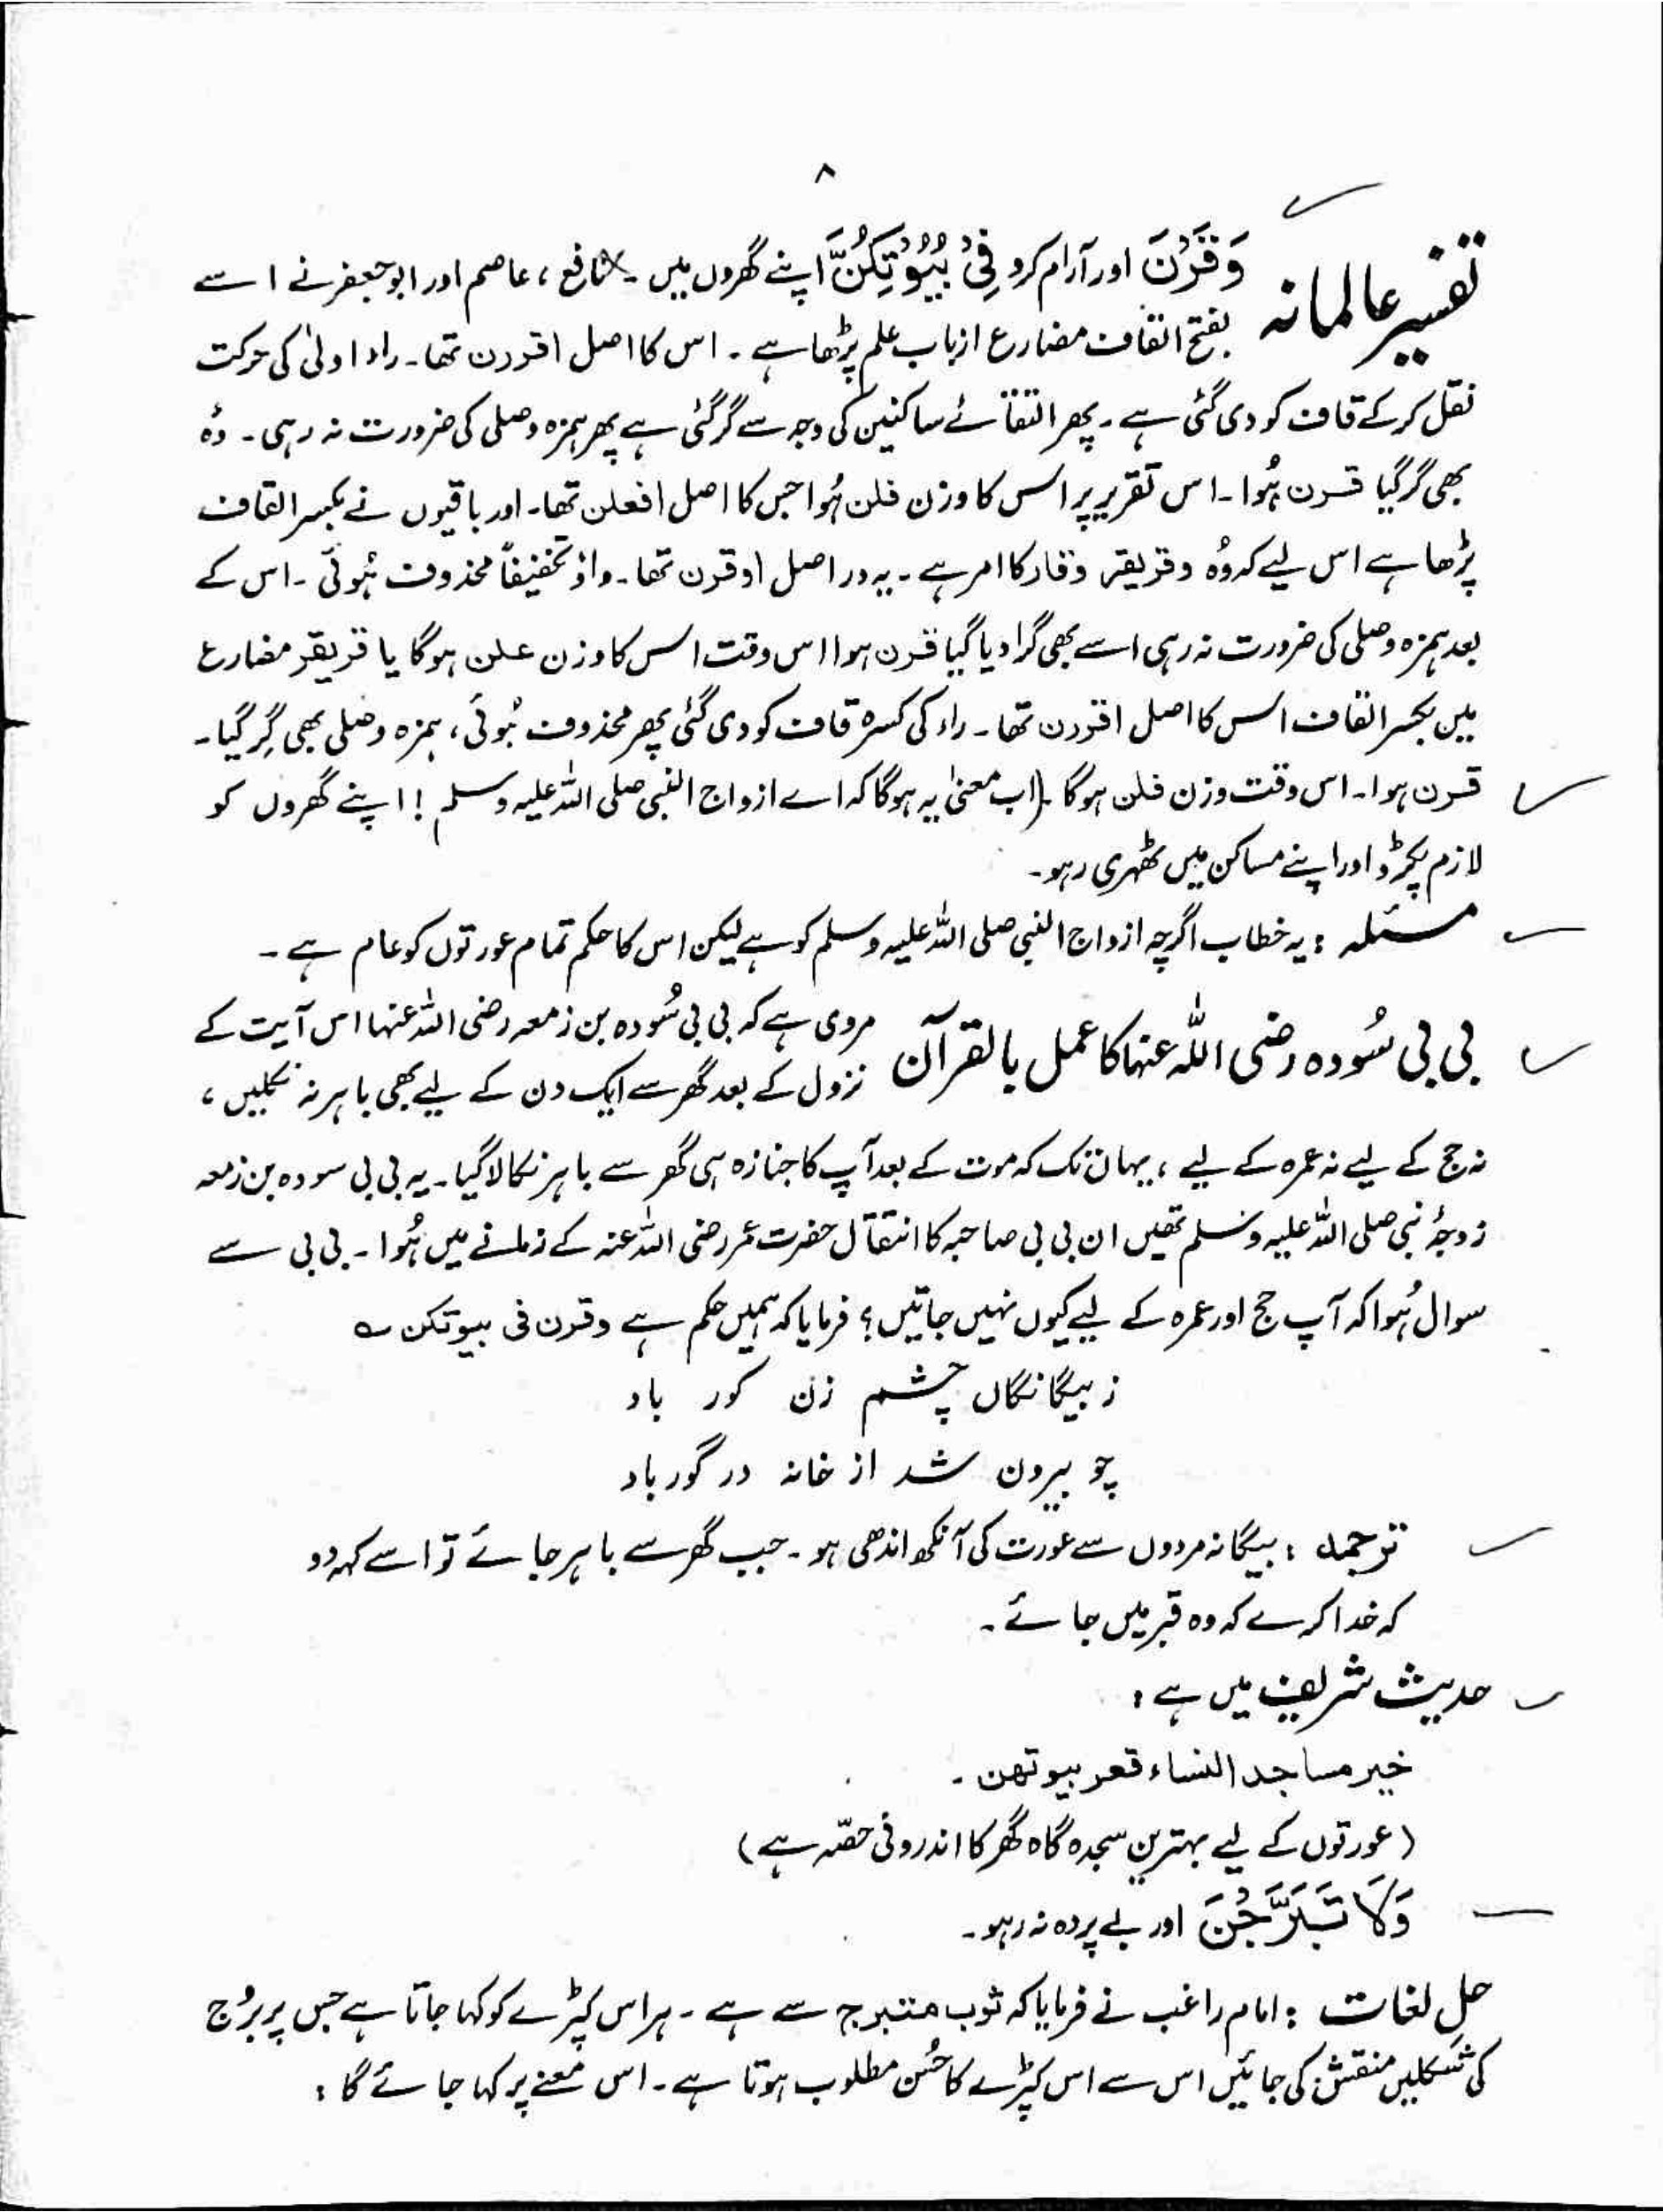 ۸
تفسیر عالمانہ وَقَرْنَ اور آرام کرو فِیْ بُیُوْتِکُنَّ اپنے گھروں میں ۔ نافع ، عاصم اور ابوجعفر نے اسے
بفتح القاف مضارع از باب علم پڑھا ہے ۔ اس کا اصل اقررن تھا ۔ راء اولیٰ کی حرکت
نقل کرکے قاف کو دی گئی ہے ۔ پھر التقائے ساکنین کی وجہ سے گر گئی ہے پھر ہمزہ وصلی کی ضرورت نہ رہی ۔ وُہ
بھی گر گیا قرن ہُوا ۔ اس تقریر پر اس کا وزن فلن ہُوا جس کا اصل افعلن تھا ۔ اور باقیوں نے بکسر القاف
پڑھا ہے اس لیے کہ وُہ وقر یقر وقار کا امر ہے ۔ یہ در اصل اوقرن تھا ۔ واؤ تخفیفاً محذوف ہُوئی ۔ اس کے
بعد ہمزہ وصلی کی ضرورت نہ رہی اسے بھی گرا دیا گیا قرن ہوا اس وقت اس کا وزن علن ہوگا یا قر یقر مضارع
میں بکسر القاف اس کا اصل اقررن تھا ۔ راء کی کسرہ قاف کو دی گئی پھر محذوف ہُوئی ، ہمزہ وصلی بھی گِر گیا ۔
قرن ہوا ۔ اس وقت وزن فلن ہوگا ۔ (اب معنیٰ یہ ہوگا کہ اے ازواج النبی صلی اللہ علیہ وسلم ! اپنے گھروں کو
لازم پکڑو اور اپنے مساکن میں ٹھہری رہو ۔
مسئلہ : یہ خطاب اگرچہ ازواج النبی صلی اللہ علیہ وسلم کو ہے لیکن اس کا حکم تمام عورتوں کو عام ہے ۔
بی بی سُودہ رضی اللہ عنہا کا عمل بالقرآن مروی ہے کہ بی بی سُودہ بن زمعہ رضی اللہ عنہا اس آیت کے
نزول کے بعد گھر سے ایک دن کے لیے بھی باہر نہ نکلیں ،
نہ حج کے لیے نہ عمرہ کے لیے ، یہاں تک کہ موت کے بعد آپ کا جنازہ ہی گھر سے باہر نکالا گیا ۔ یہ بی بی سودہ بن زمعہ
زوجۂ نبی صلی اللہ علیہ وسلم تھیں ان بی بی صاحبہ کا انتقال حضرت عمر رضی اللہ عنہ کے زمانے میں ہُوا ۔ بی بی سے
سوال ہُوا کہ آپ حج اور عمرہ کے لیے کیوں نہیں جاتیں ؟ فرمایا کہ ہمیں حکم ہے وقرن فی بیوتکن ؎
ز بیگانگاں چشم زن کور باد
چو بیرون شد از خانہ در گور باد
ترجمہ : بیگانہ مردوں سے عورت کی آنکھ اندھی ہو ۔ جب گھر سے باہر جائے تو اسے کہہ دو
کہ خدا کرے کہ وہ قبر میں جائے ۔
حدیث شریف میں ہے :
خیر مساجد النساء قعر بیوتھن ۔
(عورتوں کے لیے بہترین سجدہ گاہ گھر کا اندرونی حصّہ ہے)
وَلَا تَبَرَّجْنَ اور بے پردہ نہ رہو ۔
حل لغات : امام راغب نے فرمایا کہ ثوب متبرج سے ہے ۔ ہر اس کپڑے کو کہا جاتا ہے جس پر برُج
کی شکلیں منقش کی جائیں اس سے اس کپڑے کا حُسن مطلوب ہوتا ہے ۔ اس معنے پر کہا جائے گا :